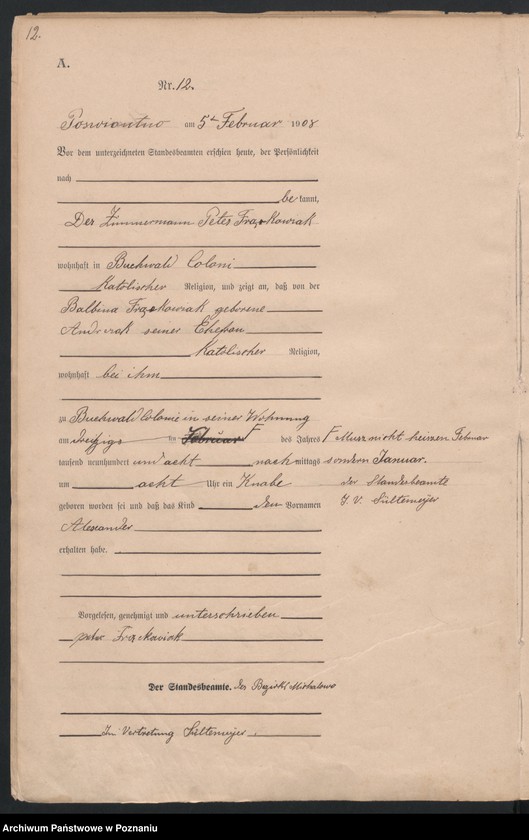 12.
A.
Nr. 12.
am 5t Februar 1908
Vor dem unterzeichneten Standesbeamten erschien heute, der Persönlichkeit
nach
be kannt,
Der Zimmermann Peter Frackowiak
wohnhaft in Buchwald Coloni
Katolischer Religion, und zeigt an, daß von der
Balbina Frackowiak geborene
seiner Ehefrau
Katolischer Religion,
wohnhaft bei ihm
zu Buchwald Colonie in seiner Wohnung
am dreißigs ten Februar F des Jahres F Muss nicht heissen Februar
tausend neunhundert und acht nach mittags sondern Januar.
um acht Uhr ein Knabe der Standesbeamte
geboren worden sei und daß das Kind den Vornamen J. V. Sültemeyer
Alexander
erhalten habe.
Vorgelesen, genehmigt und unterschrieben
Frackowiak
Der Standesbeamte. des Bezirks
In Vertretung Sültemeyer.
Archiwum Państwowe w Poznaniu